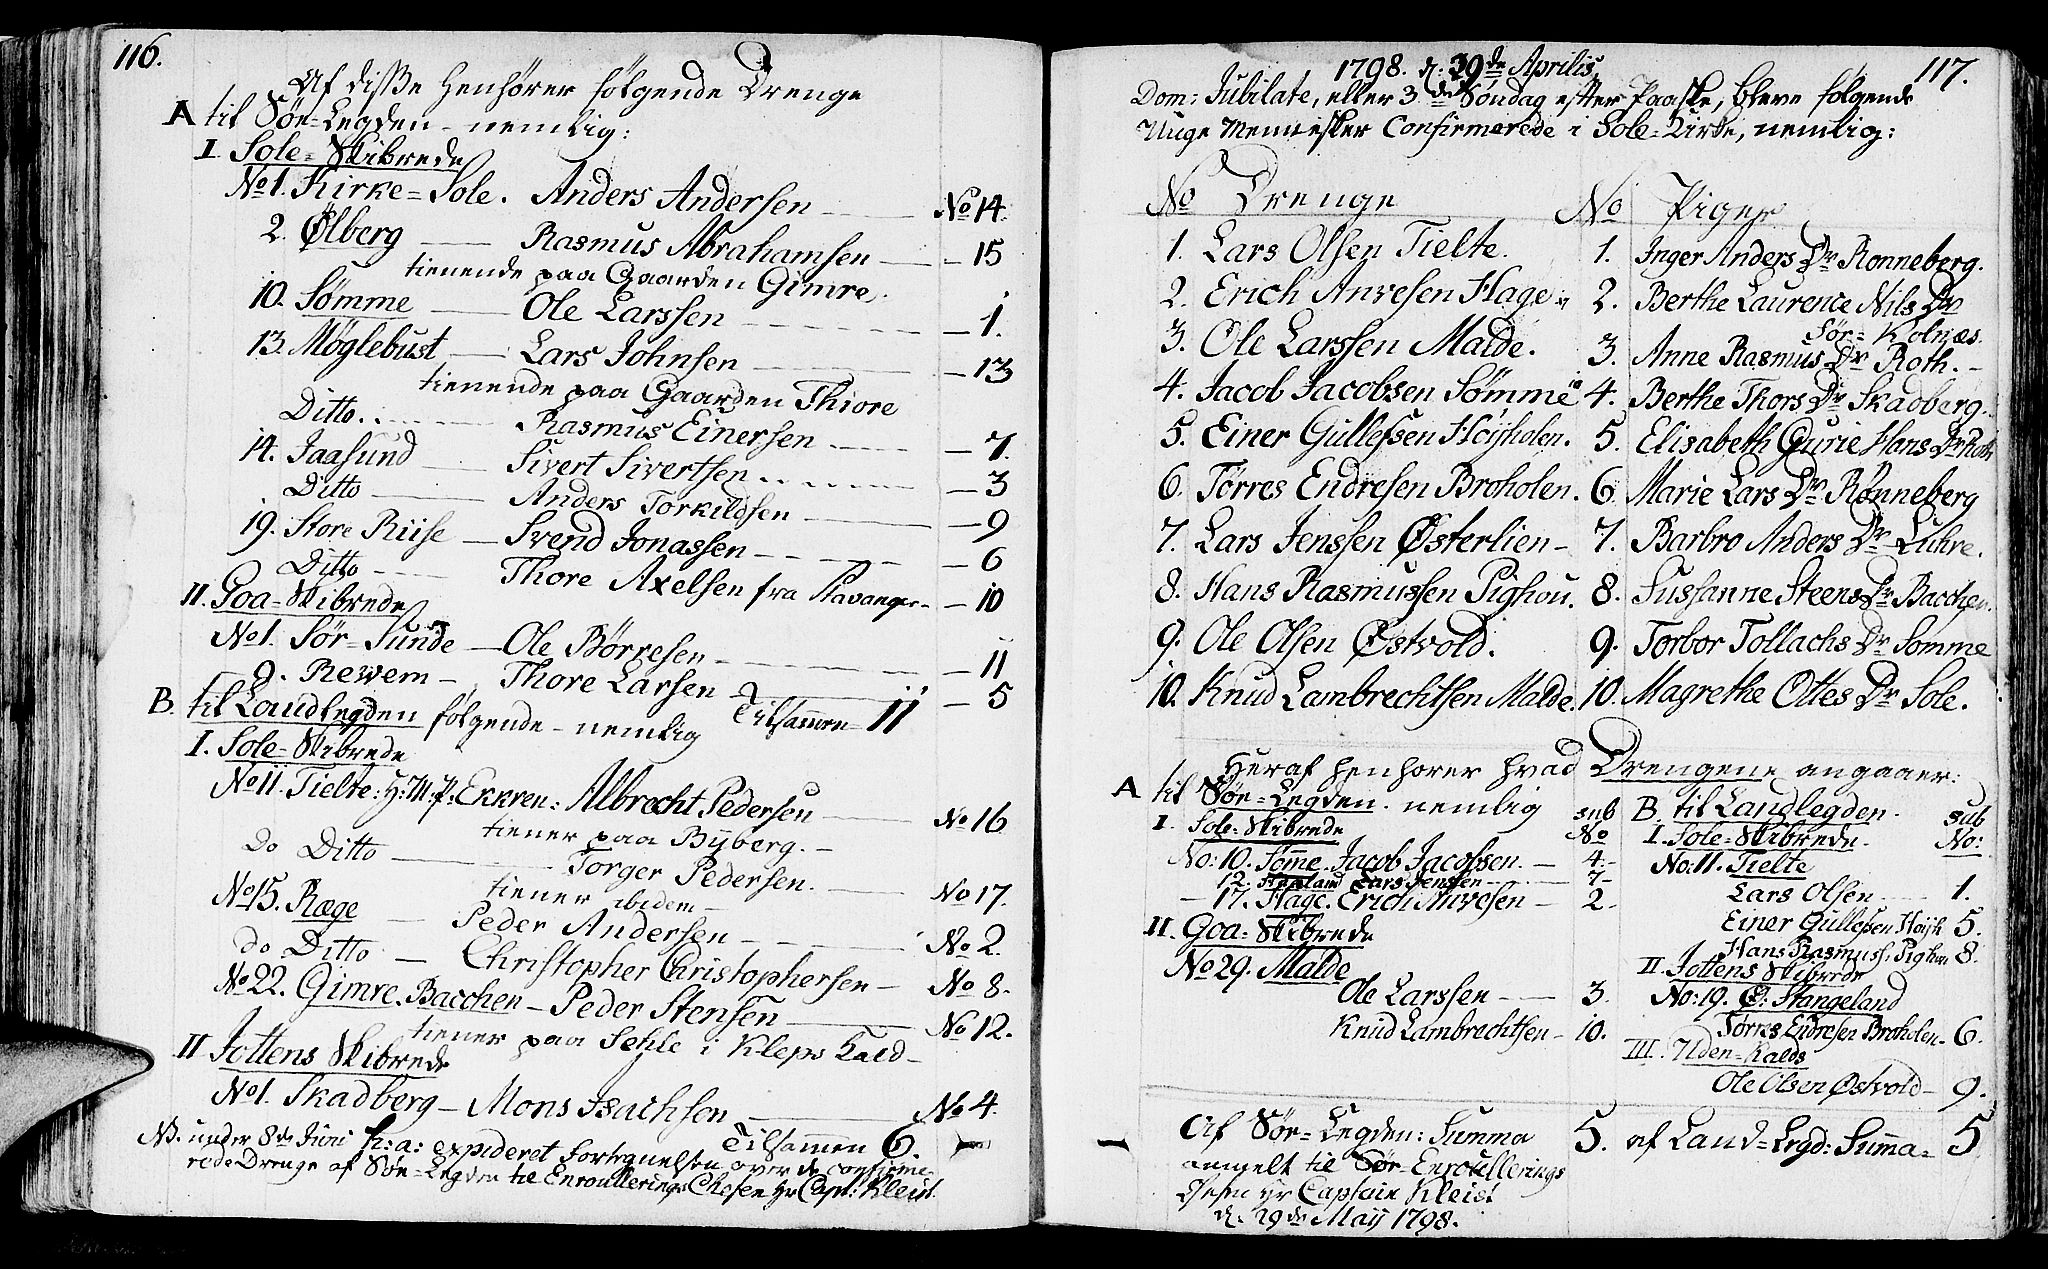 116.
Af disse henhører følgende Drenge
A til Søe-Legden - nemlig:
I. Sole-Skibrede
No 1. Kirke-Sole. Anders Andersen No 14.
2. Ølberg Rasmus Abrahamsen 15
tienende paa Gaarden Gimre.
10. Sømme Ole Larssen 1.
13. Møglebust Lars Johnsen 13
tienende paa Gaarden Thiore
Ditto Rasmus Einersen 7.
14. Jaasund Sivert Sivertsen 3
Ditto Anders Torkildsen 9
19. Store Riise Svend Jonassen 6
Ditto Thore Axelsen fra Stavanger 10
II. Goa-Skibrede
No 1. Sør-Sunde Ole Børresen 11
9. Rewem Thore Larsen 5
Tilsammen 11
B. til Landlegden følgende - nemlig
I. Sole-Skibrede
No 11. Tielte: H: M: P: Ekkren: Albrecht Pedersen No 16
tiener paa Byberg.
Do Ditto Torger Pedersen. No 17.
tiener ibidem
No 15. Ræge Peder Andersen No 2.
do Ditto Christopher Christophersen No 8.
No 22. Gimre. Bacchen Peder Stensen No 12.
tiener paa Sehle i Kleps Kald
II Jottens Skibrede
No 1. Skadberg Mons Isachsen No 4.
Tilsammen 6.
NB. under 8de Junii h: a: expideret Fortegnelsen over de confirme-
rede Drenge af Søe-Legden til Enroullerings Chefen Hr Capt: Kleist.
117.
1798. d: 29de Aprilis,
Dom: Jubilate, eller 3de Søndag efter Paaske, bleve følgende
Unge Mennesker Confirmerede i Sole-Kirke, nemlig:
No Drenge
1. Lars Olsen Tielte.
2. Erich Anvesen Hage
3. Ole Larssen Malde.
4. Jacob Jacobsen Sømme
5. Einer Gullefsen Høyholen.
6. Tørres Endresen Broholen.
7. Lars Jenssen Østerlien
8. Hans Rasmussen Pighou.
9. Ole Olsen Østvold.
10. Knud Lambrechtsen Malde.
No Piger
1. Inger Anders Dr Ronneberg.
2. Berthe Laurence Nils Dr
Sør-Kolnæs.
3. Anne Rasmus Dr Roth.
4. Berthe Thors Dr Skadberg.
5. Elisabeth Gurie Hans Dr Roth
6. Marie Lars Dr Rønneberg
7. Barbro Anders Dr Luhre.
8. Sussanne Steens Dr Bacchen.
9. Torbor Tollachs Dr Somme
10. Magrethe Ottes Dr Sole.
Heraf henhører hvad Drengene angaaer:
A til Søe-Legden. nemlig sub
I. Sole-Skibrede No
No: 10. Sømme. Jacob Jacobsen. 4.
12. Lars Jenssen 7
17. Hage. Erich Anvesen 2
II. Goa-Skibrede
No 29. Malde
Ole Larssen 3.
Knud Lambrechtsen 10.
B. til Landlegden. sub
I. Sole-Skibrede. No:
No: 11. Tielte
Lars Olsen 1.
Einer Gullefsen Høyh 5.
Hans Rasmuss: Pighou 8.
II. Jottens Skibrede
No: 19. Ø: Stangeland
Tørres Endresen Broholen 6.
III. Uden-Kalds
Ole Olsen Østvold 9.
Af Søe-Legden: Summa 5. af Land-Legd: Summa 5
anmelt til Søe-Enroullerings
Chefen Hr Captain Kleist
d: 29de Maij 1798.